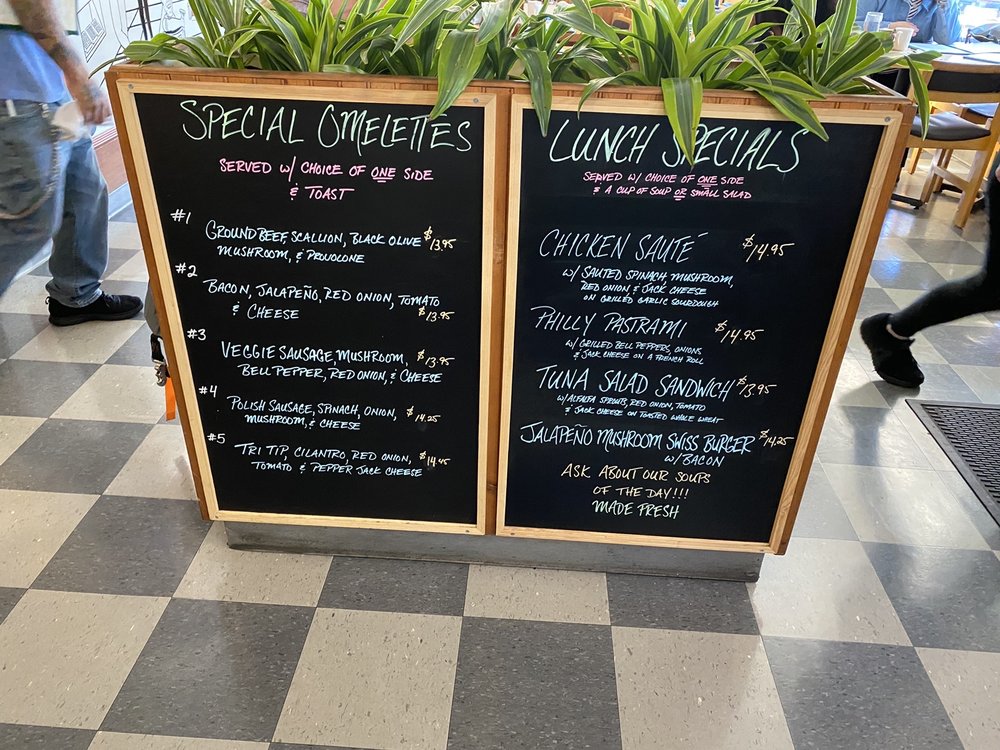 SPECIAL OMELETTES
SERVED W/ CHOICE OF ONE SIDE
& TOAST
#1
GROUND BEEF, SCALLION, BLACK OLIVE $13.95
MUSHROOM, & PROVOLONE
#2
BACON, JALAPEÑO, RED ONION, TOMATO
& CHEESE $13.95
#3
VEGGIE SAUSAGE, MUSHROOM, $13.95
BELL PEPPER, RED ONION, & CHEESE
#4
POLISH SAUSAGE, SPINACH, ONION, $14.25
MUSHROOM, & CHEESE
#5
TRI TIP, CILANTRO, RED ONION, $14.45
TOMATO & PEPPER JACK CHEESE
LUNCH SPECIALS
SERVED W/ CHOICE OF ONE SIDE
& A CUP OF SOUP OR SMALL SALAD
CHICKEN SAUTÉ $14.95
W/ SAUTED SPINACH, MUSHROOM,
RED ONION & JACK CHEESE
ON GRILLED GARLIC SOURDOUGH
PHILLY PASTRAMI $14.95
W/ GRILLED BELL PEPPERS, ONIONS
& JACK CHEESE ON A FRENCH ROLL
TUNA SALAD SANDWICH $13.95
W/ALFALFA SPROUTS, RED ONION, TOMATO
& JACK CHEESE ON TOASTED WHOLE WHEAT
JALAPEÑO MUSHROOM SWISS BURGER $14.25
W/BACON
ASK ABOUT OUR SOUPS
OF THE DAY!!!
MADE FRESH